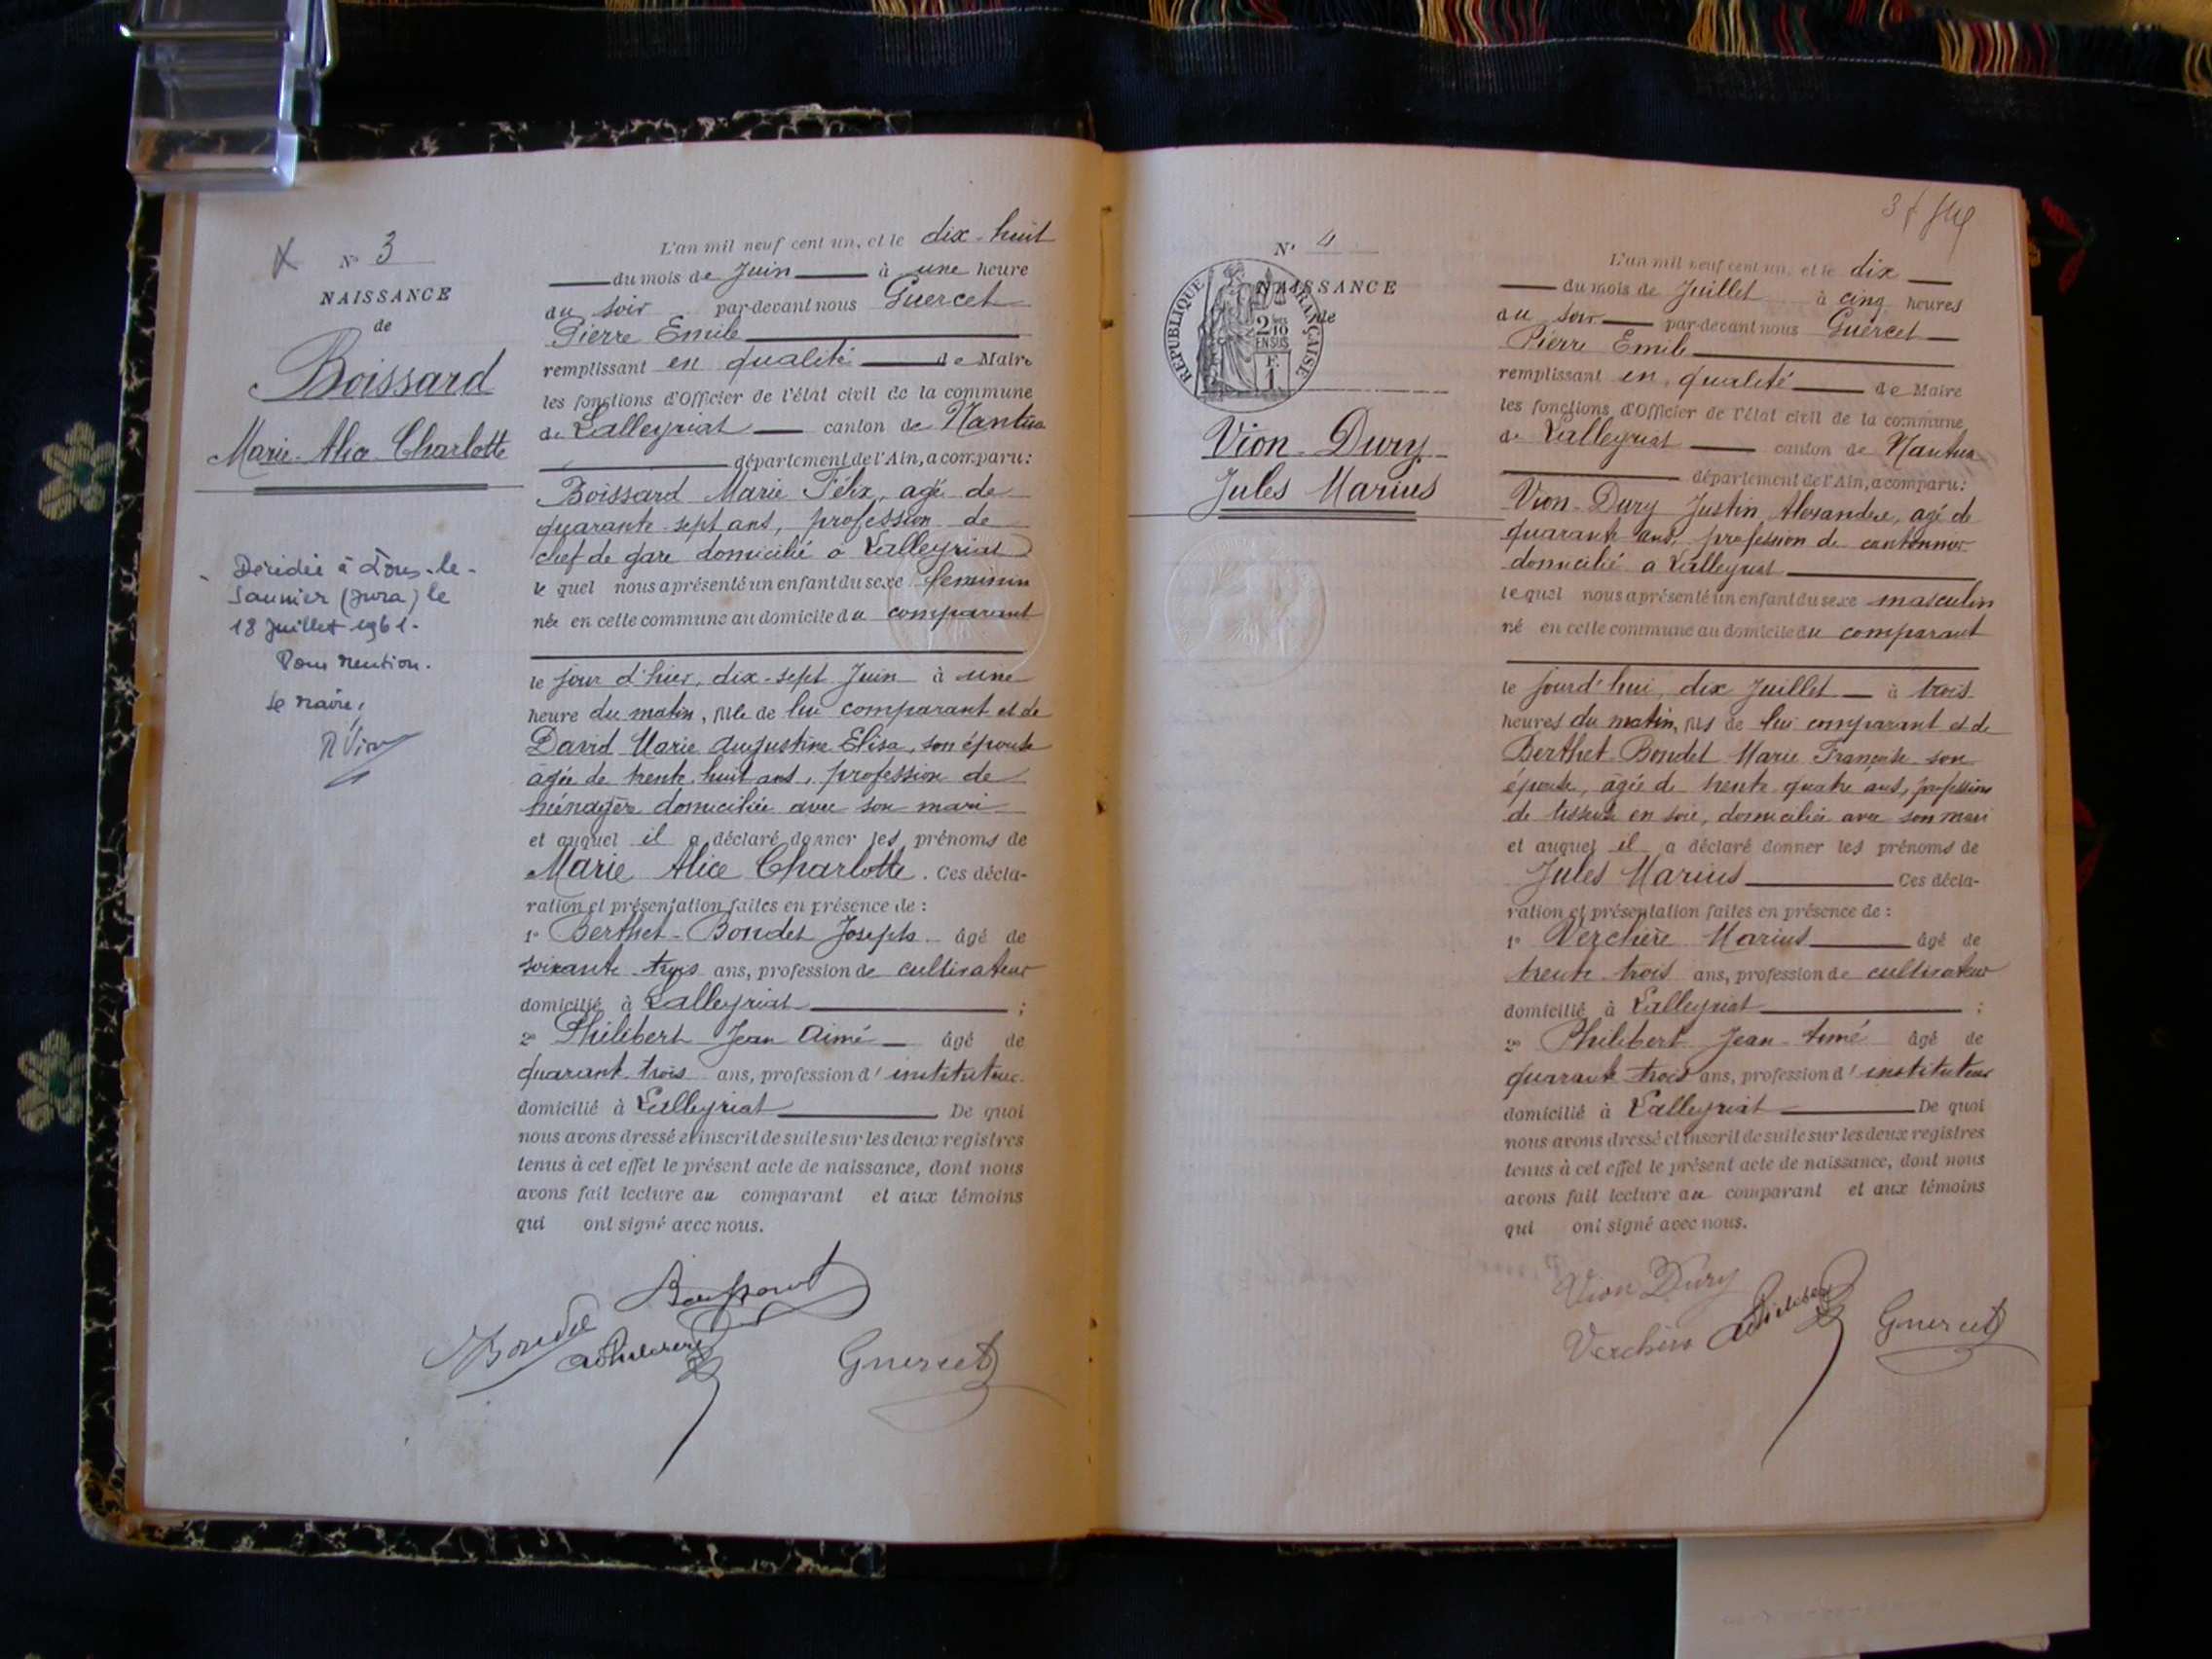 N° 3
NAISSANCE
de
Boissard
Marie-Alice-Charlotte
Décédée à Lons-le-
Saunier (Jura) le
18 Juillet 1961.
Pour mention.
Le Maire,
L'an mil neuf cent un, et le dix-huit
du mois de Juin à une heure
du soir par-devant nous Guercet
Pierre Emile
remplissant en qualité de Maire
les fonctions d'Officier de l'état civil de la commune
de Lalleyriat canton de Nantua
département de l'Ain, a comparu:
Boissard Marie Félix, agé de
quarante-sept ans, profession de
chef de gare domicilié à Lalleyriat
le quel nous a présenté un enfant du sexe feminin
née en cette commune au domicile du comparant
le jour d'hier, dix-sept Juin à une
heure du matin, fille de lui comparant et de
David Marie Augustine Elisa, son épouse
âgée de trente-huit ans, profession de
ménagère domiciliée avec son mari
et auquel il a déclaré donner les prénoms de
Marie Alice Charlotte. Ces décla-
ration et présentation faites en présence de :
1° Berthet-Bondet Joseph âgé de
soixante-trois ans, profession de cultivateur
domicilié à Lalleyriat ;
2° Philibert Jean Aimé âgé de
quarante-trois ans, profession d'instituteur
domicilié à Lalleyriat De quoi
nous avons dressé et inscrit de suite sur les deux registres
tenus à cet effet le présent acte de naissance, dont nous
avons fait lecture au comparant et aux témoins
qui ont signé avec nous.
Boissard
Bondet
Philibert
Guercet
N° 4
NAISSANCE
de
REPUBLIQUE FRANÇAISE
2/10
EN SUS
F.
1
Vion-Dury
Jules Marius
L'an mil neuf cent un, et le dix
du mois de Juillet à cinq heures
du soir par-devant nous Guercet
Pierre Emile
remplissant en qualité de Maire
les fonctions d'Officier de l'état civil de la commune
de Lalleyriat canton de Nantua
département de l'Ain, a comparu:
Vion-Dury Justin Alexandre, agé de
quarante ans, profession de cantonnier
domicilié a Lalleyriat
le quel nous a présenté un enfant du sexe masculin
né en cette commune au domicile du comparant
le jourd'hui, dix Juillet à trois
heures du matin, fils de lui comparant et de
Berthet-Bondet Marie Françoise son
épouse, âgée de trente-quatre ans, profession
de tisseuse en soie, domiciliée avec son mari
et auquel il a déclaré donner les prénoms de
Jules Marius Ces décla-
ration et présentation faites en présence de :
1° Verchère Marius âgé de
trente-trois ans, profession de cultivateur
domicilié à Lalleyriat ;
2° Philibert Jean-Aimé âgé de
quarante-trois ans, profession d'instituteur
domicilié à Lalleyriat De quoi
nous avons dressé et inscrit de suite sur les deux registres
tenus à cet effet le présent acte de naissance, dont nous
avons fait lecture au comparant et aux témoins
qui ont signé avec nous.
Vion Dury
Verchère
Philibert
Guercet